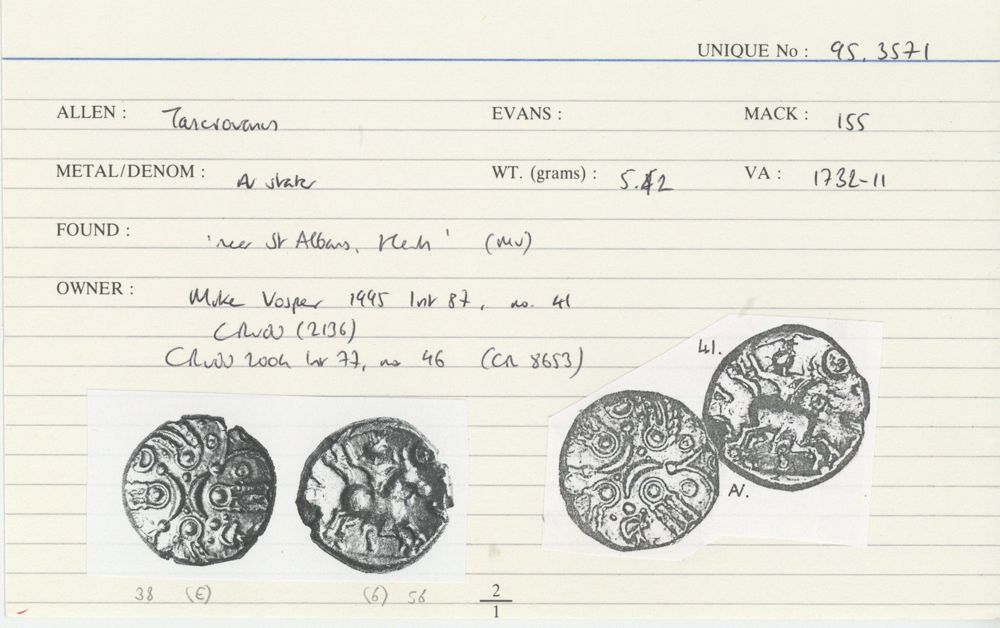 UNIQUE No : 95. 3571
ALLEN : Tasciovanus EVANS : MACK : 155
METAL/DENOM : AV stater WT. (grams) : 5.42 VA : 1732-11
FOUND : 'near St Albans, Herts' (MV)
OWNER : Mike Vosper 1995 list 87, no. 41
(2136)
2004 list 77, no 46 (CR 8653)
41.
AV.
38 (E) (6) 56
2
1